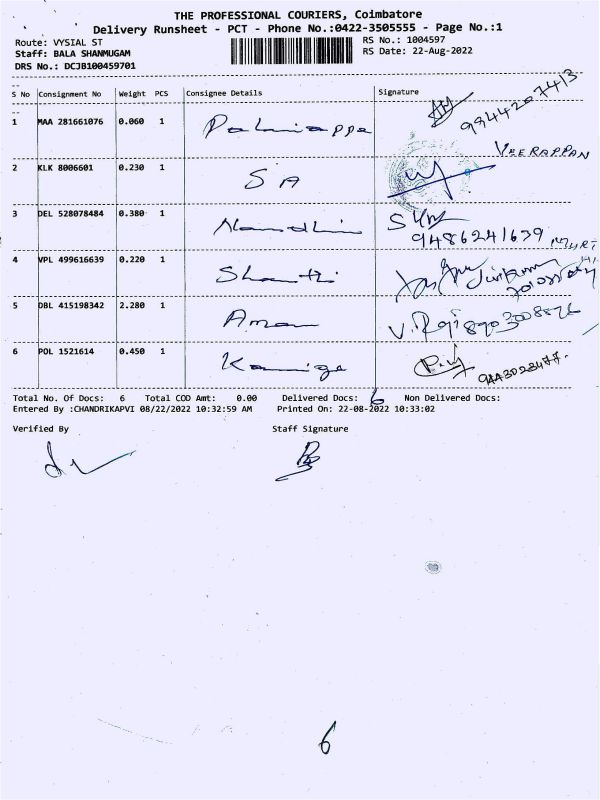 THE PROFESSIONAL COURIERS, Coimbatore
Delivery Runsheet - PCT - Phone No.:0422-3505555 - Page No.:1
Route: VYSIAL ST
RS No.: 1004597
Staff: BALA SHANMUGAM
RS Date: 22-Aug-2022
DRS No.: DCJB100459701
S No Consignment No Weight PCS Consignee Details Signature
1 MAA 281661076 0.060 1 Palaniappa 9944207413
VEERAPPAN
2 KLK 8006601 0.230 1 SA
3 DEL 528078484 0.380 1 Nandhini
9486241639
4 VPL 499616639 0.220 1 Shanthi
5 DBL 415198342 2.280 1 Aman V.Raji 8903008896
6 POL 1521614 0.450 1
Total No. Of Docs: 6 Total COD Amt: 0.00 Delivered Docs: 6 Non Delivered Docs:
Entered By :CHANDRIKAPVI 08/22/2022 10:32:59 AM Printed On: 22-08-2022 10:33:02
Verified By Staff Signature
6